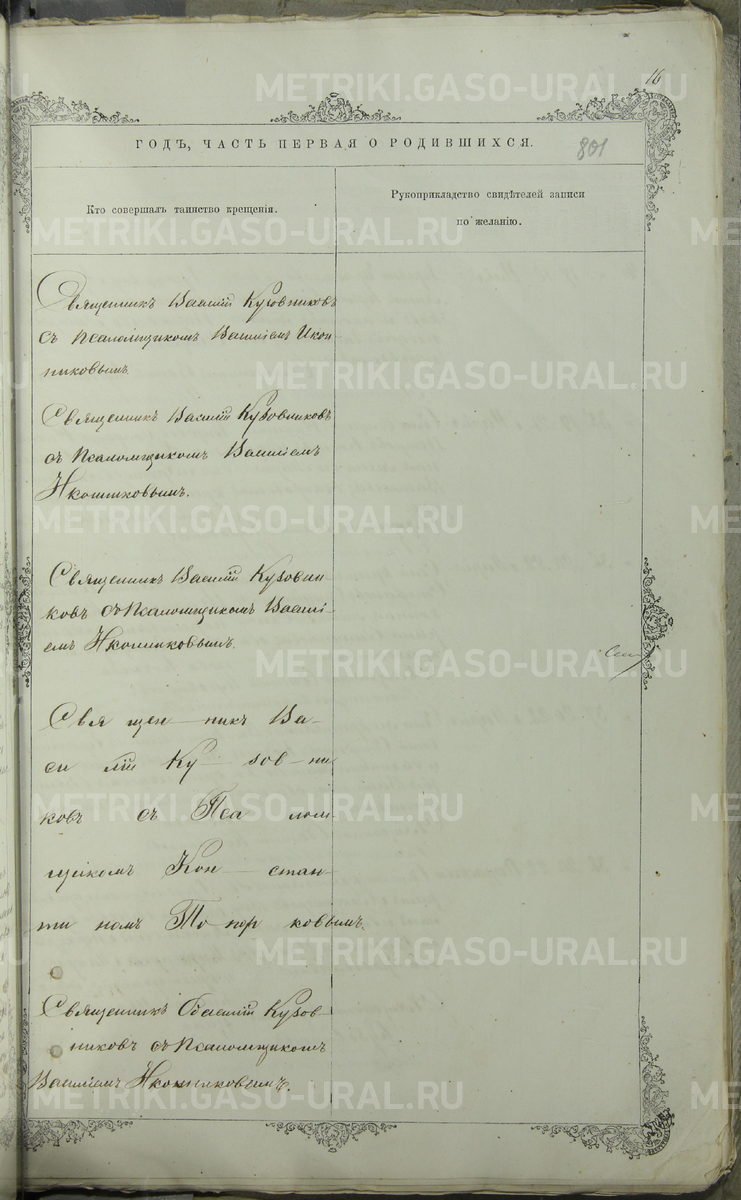 16
ГОДЪ, ЧАСТЬ ПЕРВАЯ О РОДИВШИХСЯ.
801
Кто совершалъ таинство крещенія.
Рукоприкладство свидѣтелей записи
по желанію.
Священникъ Василій Кузовниковъ
съ псаломщикомъ Василіемъ Икон
никовымъ.
Священникъ Василій Кузовниковъ
съ Псаломщикомъ Василіемъ
Иконниковымъ.
Священникъ Василій Кузовни
ковъ съ Псаломщикомъ Васи́лі-
емъ Иконниковымъ.
Свя щен — никъ Ва-
си лій Ку — зов — ни
ковъ съ Пса лом
щикомъ Кон — стан-
ти номъ То пор ковымъ.
Священникъ Василій Кузов-
никовъ съ Псаломщикомъ
Василіемъ Иконниковымъ.
METRIKI.GASO-URAL.RU